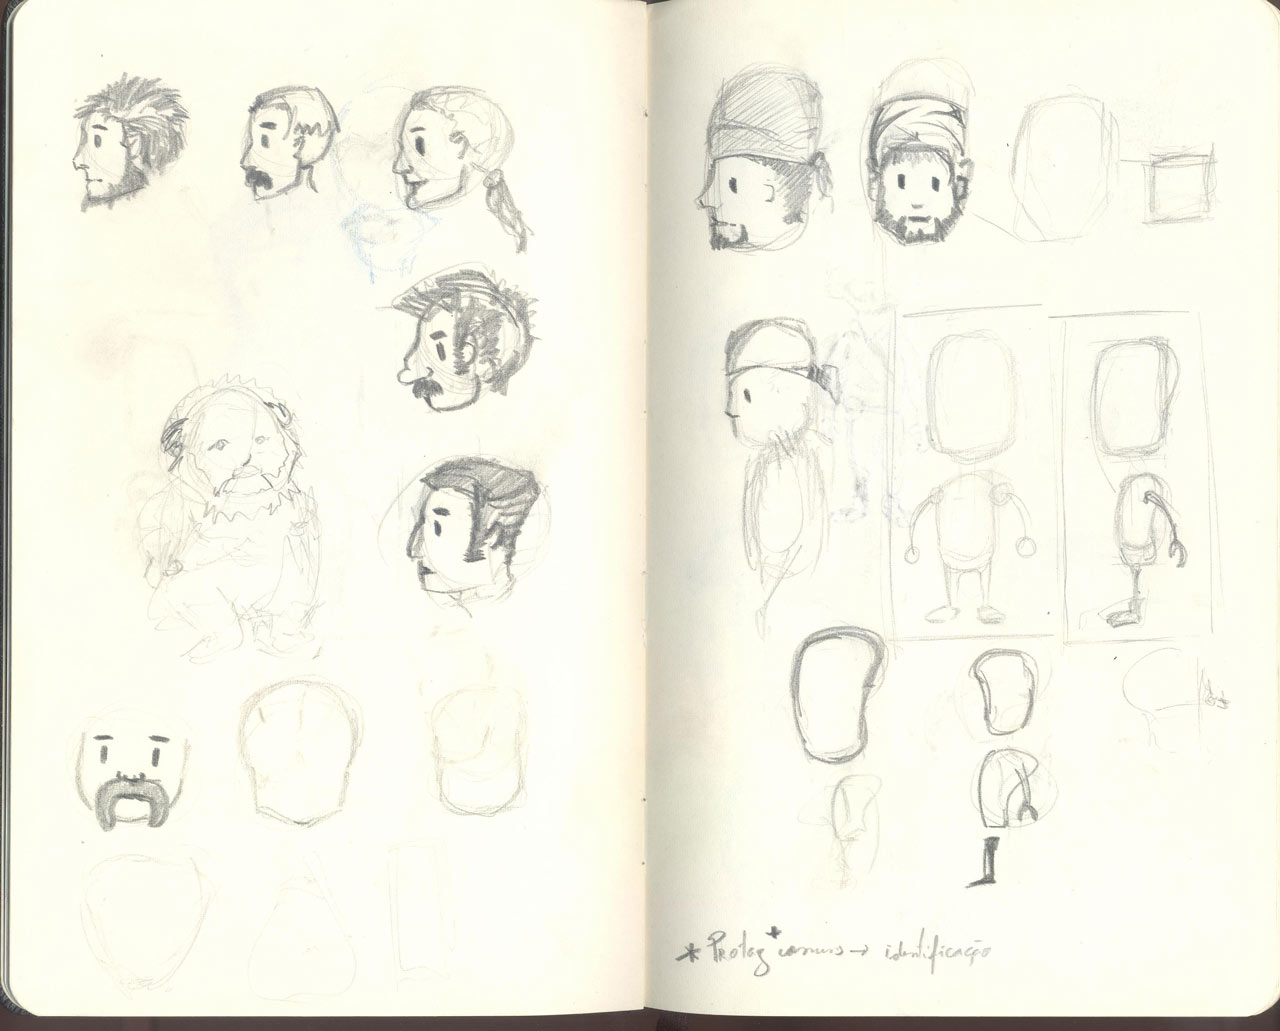 * Protag + comum → identificação